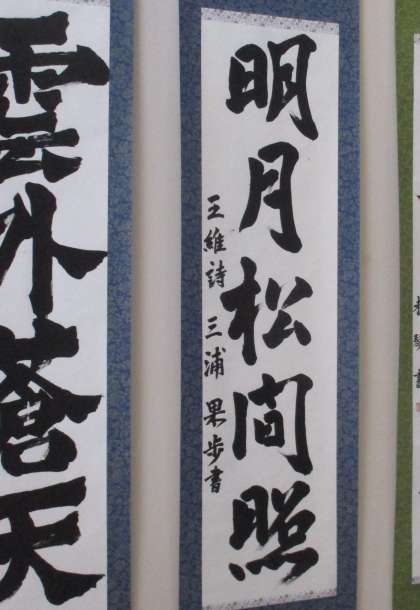 明月松間照
王維詩 三浦 果歩書
雲外蒼天